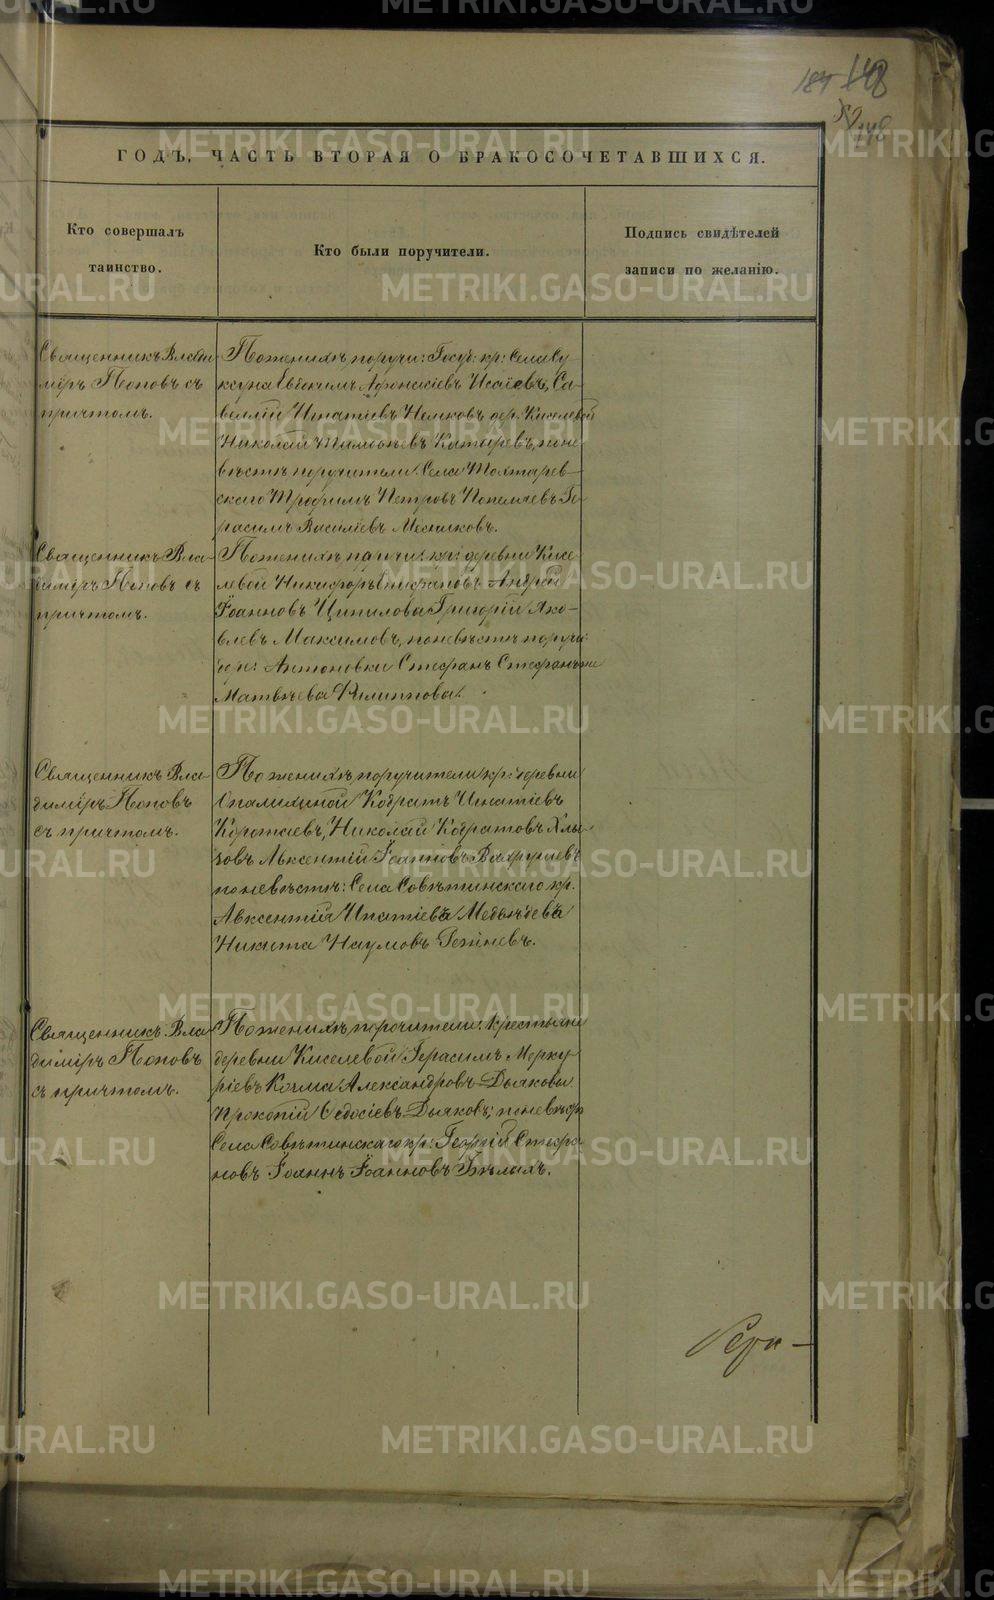 148
ГОДЪ, ЧАСТЬ ВТОРАЯ О БРАКОСОЧЕТАВШИХСЯ.
Кто совершалъ
таинство.
Кто были поручители.
Подпись свидѣтелей
записи по желанію.
Священникъ Влади
міръ Поповъ съ
причтомъ.
По женихѣ поручи: Госуд: кр: Села Су
Евѳимъ Аѳонасіевъ Исаевъ, Са-
велій Игнатіевъ Немковъ, дер. Киселевой
Николай Тимоѳеевъ Катыревъ, по не
вѣстѣ поручители: Села Тохтарев
скаго Трофимъ Петровъ Ге
расимъ Василіевъ
Священникъ Вла-
диміръ Поповъ съ
причтомъ.
По женихѣ поручи: кр: деревни Кисе
левой Никифоръ Епифановъ Андрей
Іоанновъ Ципилова Григорій Яко-
влевъ Максимовъ, по невѣстѣ поручи:
дер: Антоновки Стефанъ
Матвѣева Филиппова.
Священникъ Вла-
диміръ Поповъ
съ причтомъ.
По женихѣ поручители кр: деревни
Опалихиной Кодратъ Игнатіевъ
Коротаевъ, Николай Кодратовъ Хлы-
зовъ Авксентій Іоанновъ Вахрушевъ
по невѣстѣ: Села Совѣтинскаго кр.
Авксентія Ипатіева Медвѣдева
Никита Наумовъ
Священникъ Вла
диміръ Поповъ
съ причтомъ.
По женихѣ, порочители: Крестьяне
деревни Киселевой Герасимъ Мерку
ріевъ Козма Александровъ Дьяковы
Прокопій Ѳедосіевъ Дьяковъ; по невѣс
Села Совѣтинскаго кр: Георгій Стефа
новъ Іоаннъ Іоанновъ Бѣлыхъ.
METRIKI.GASO-URAL.RU